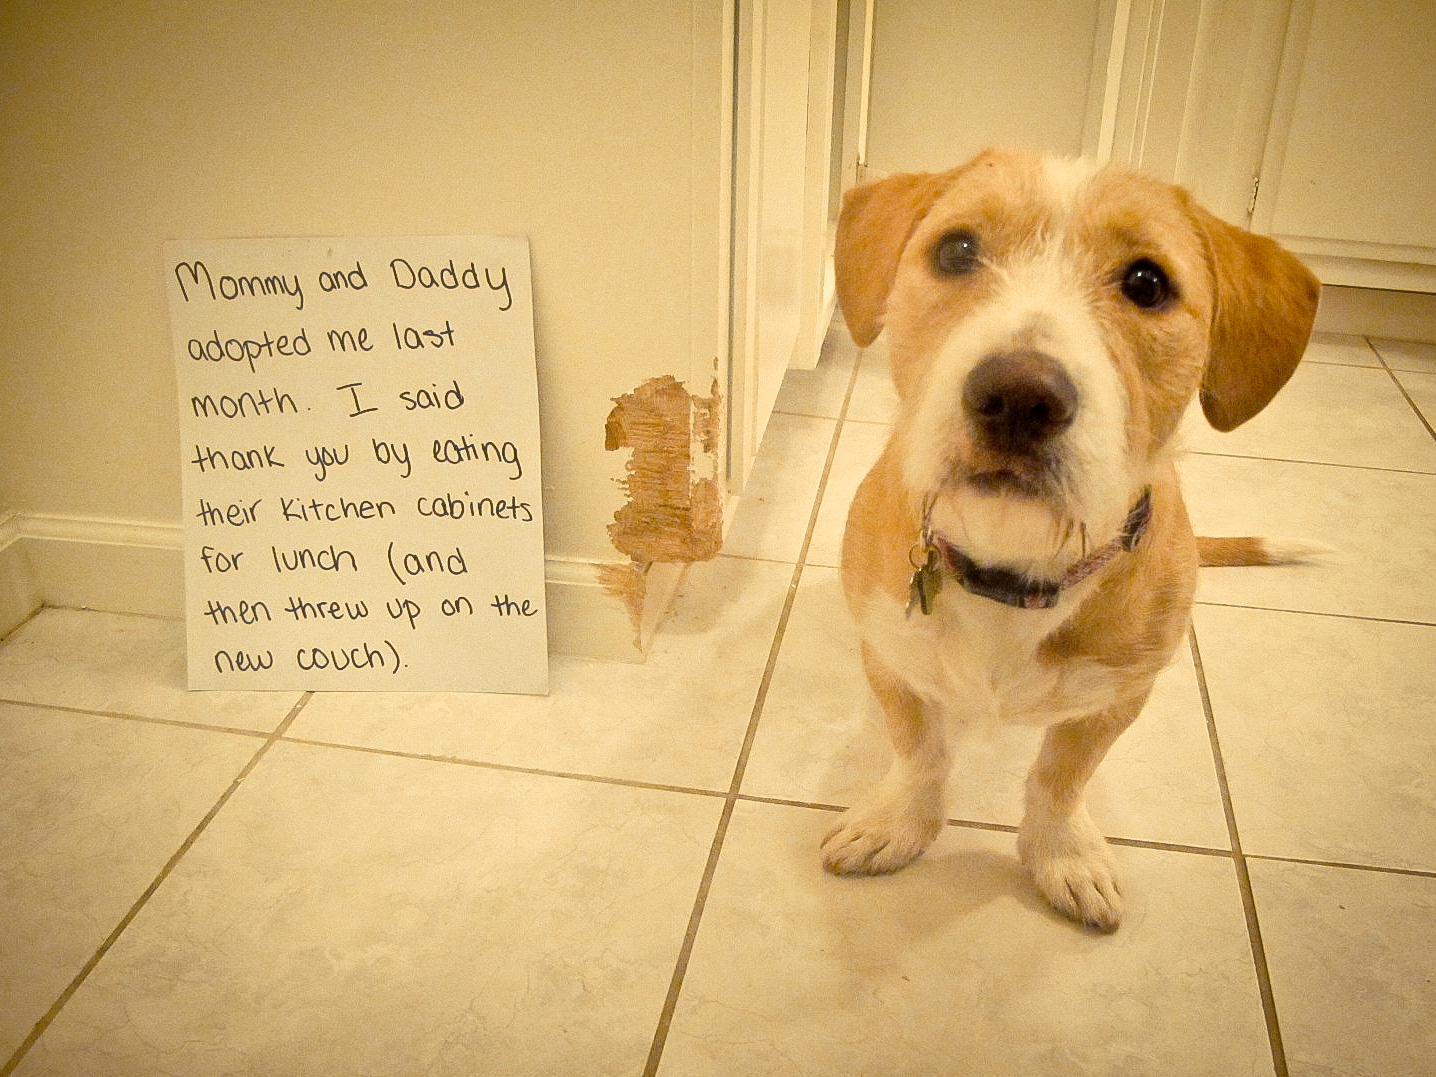 Mommy and Daddy
adopted me last
month. I said
thank you by eating
their kitchen cabinets
for lunch (and
then threw up on the
new couch).